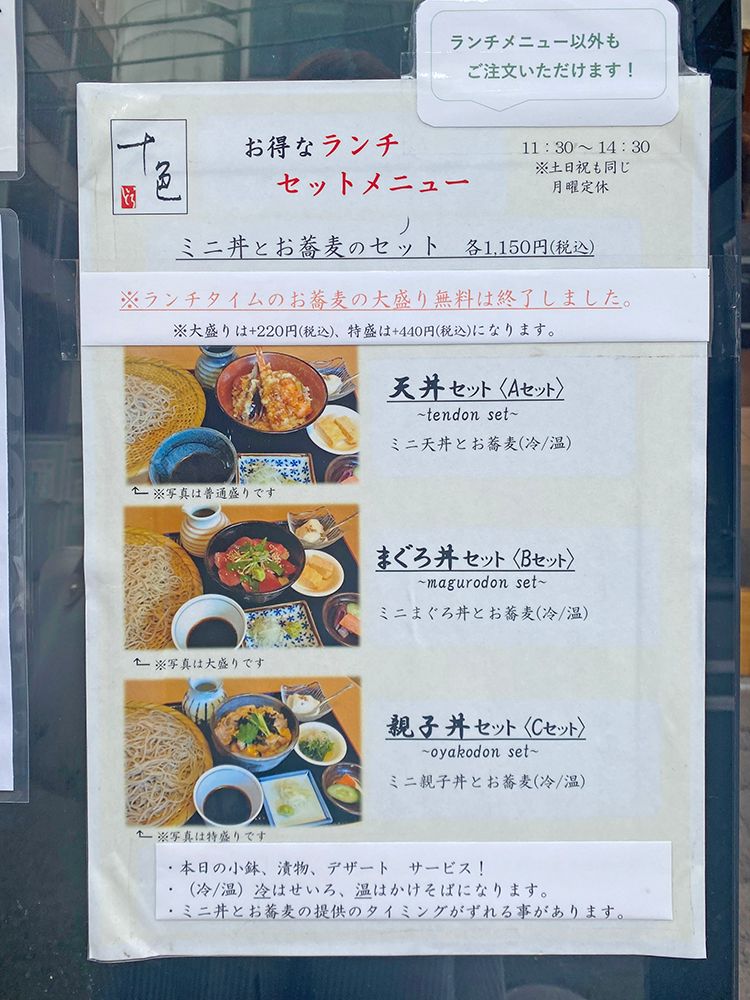 ランチメニュー以外も
ご注文いただけます！
十色
お得なランチ
セットメニュー
11：30～14：30
※土日祝も同じ
月曜定休
ミニ丼とお蕎麦のセット　各1,150円(税込)
※ランチタイムのお蕎麦の大盛り無料は終了しました。
※大盛りは+220円(税込)、特盛は+440円(税込)になります。
天丼セット〈Aセット〉
~tendon set~
ミニ天丼とお蕎麦(冷/温)
※写真は普通盛りです
まぐろ丼セット〈Bセット〉
~magurodon set~
ミニまぐろ丼とお蕎麦(冷/温)
※写真は大盛りです
親子丼セット〈Cセット〉
~oyakodon set~
ミニ親子丼とお蕎麦(冷/温)
※写真は特盛りです
・本日の小鉢、漬物、デザート　サービス！
・（冷/温）冷はせいろ、温はかけそばになります。
・ミニ丼とお蕎麦の提供のタイミングがずれる事があります。